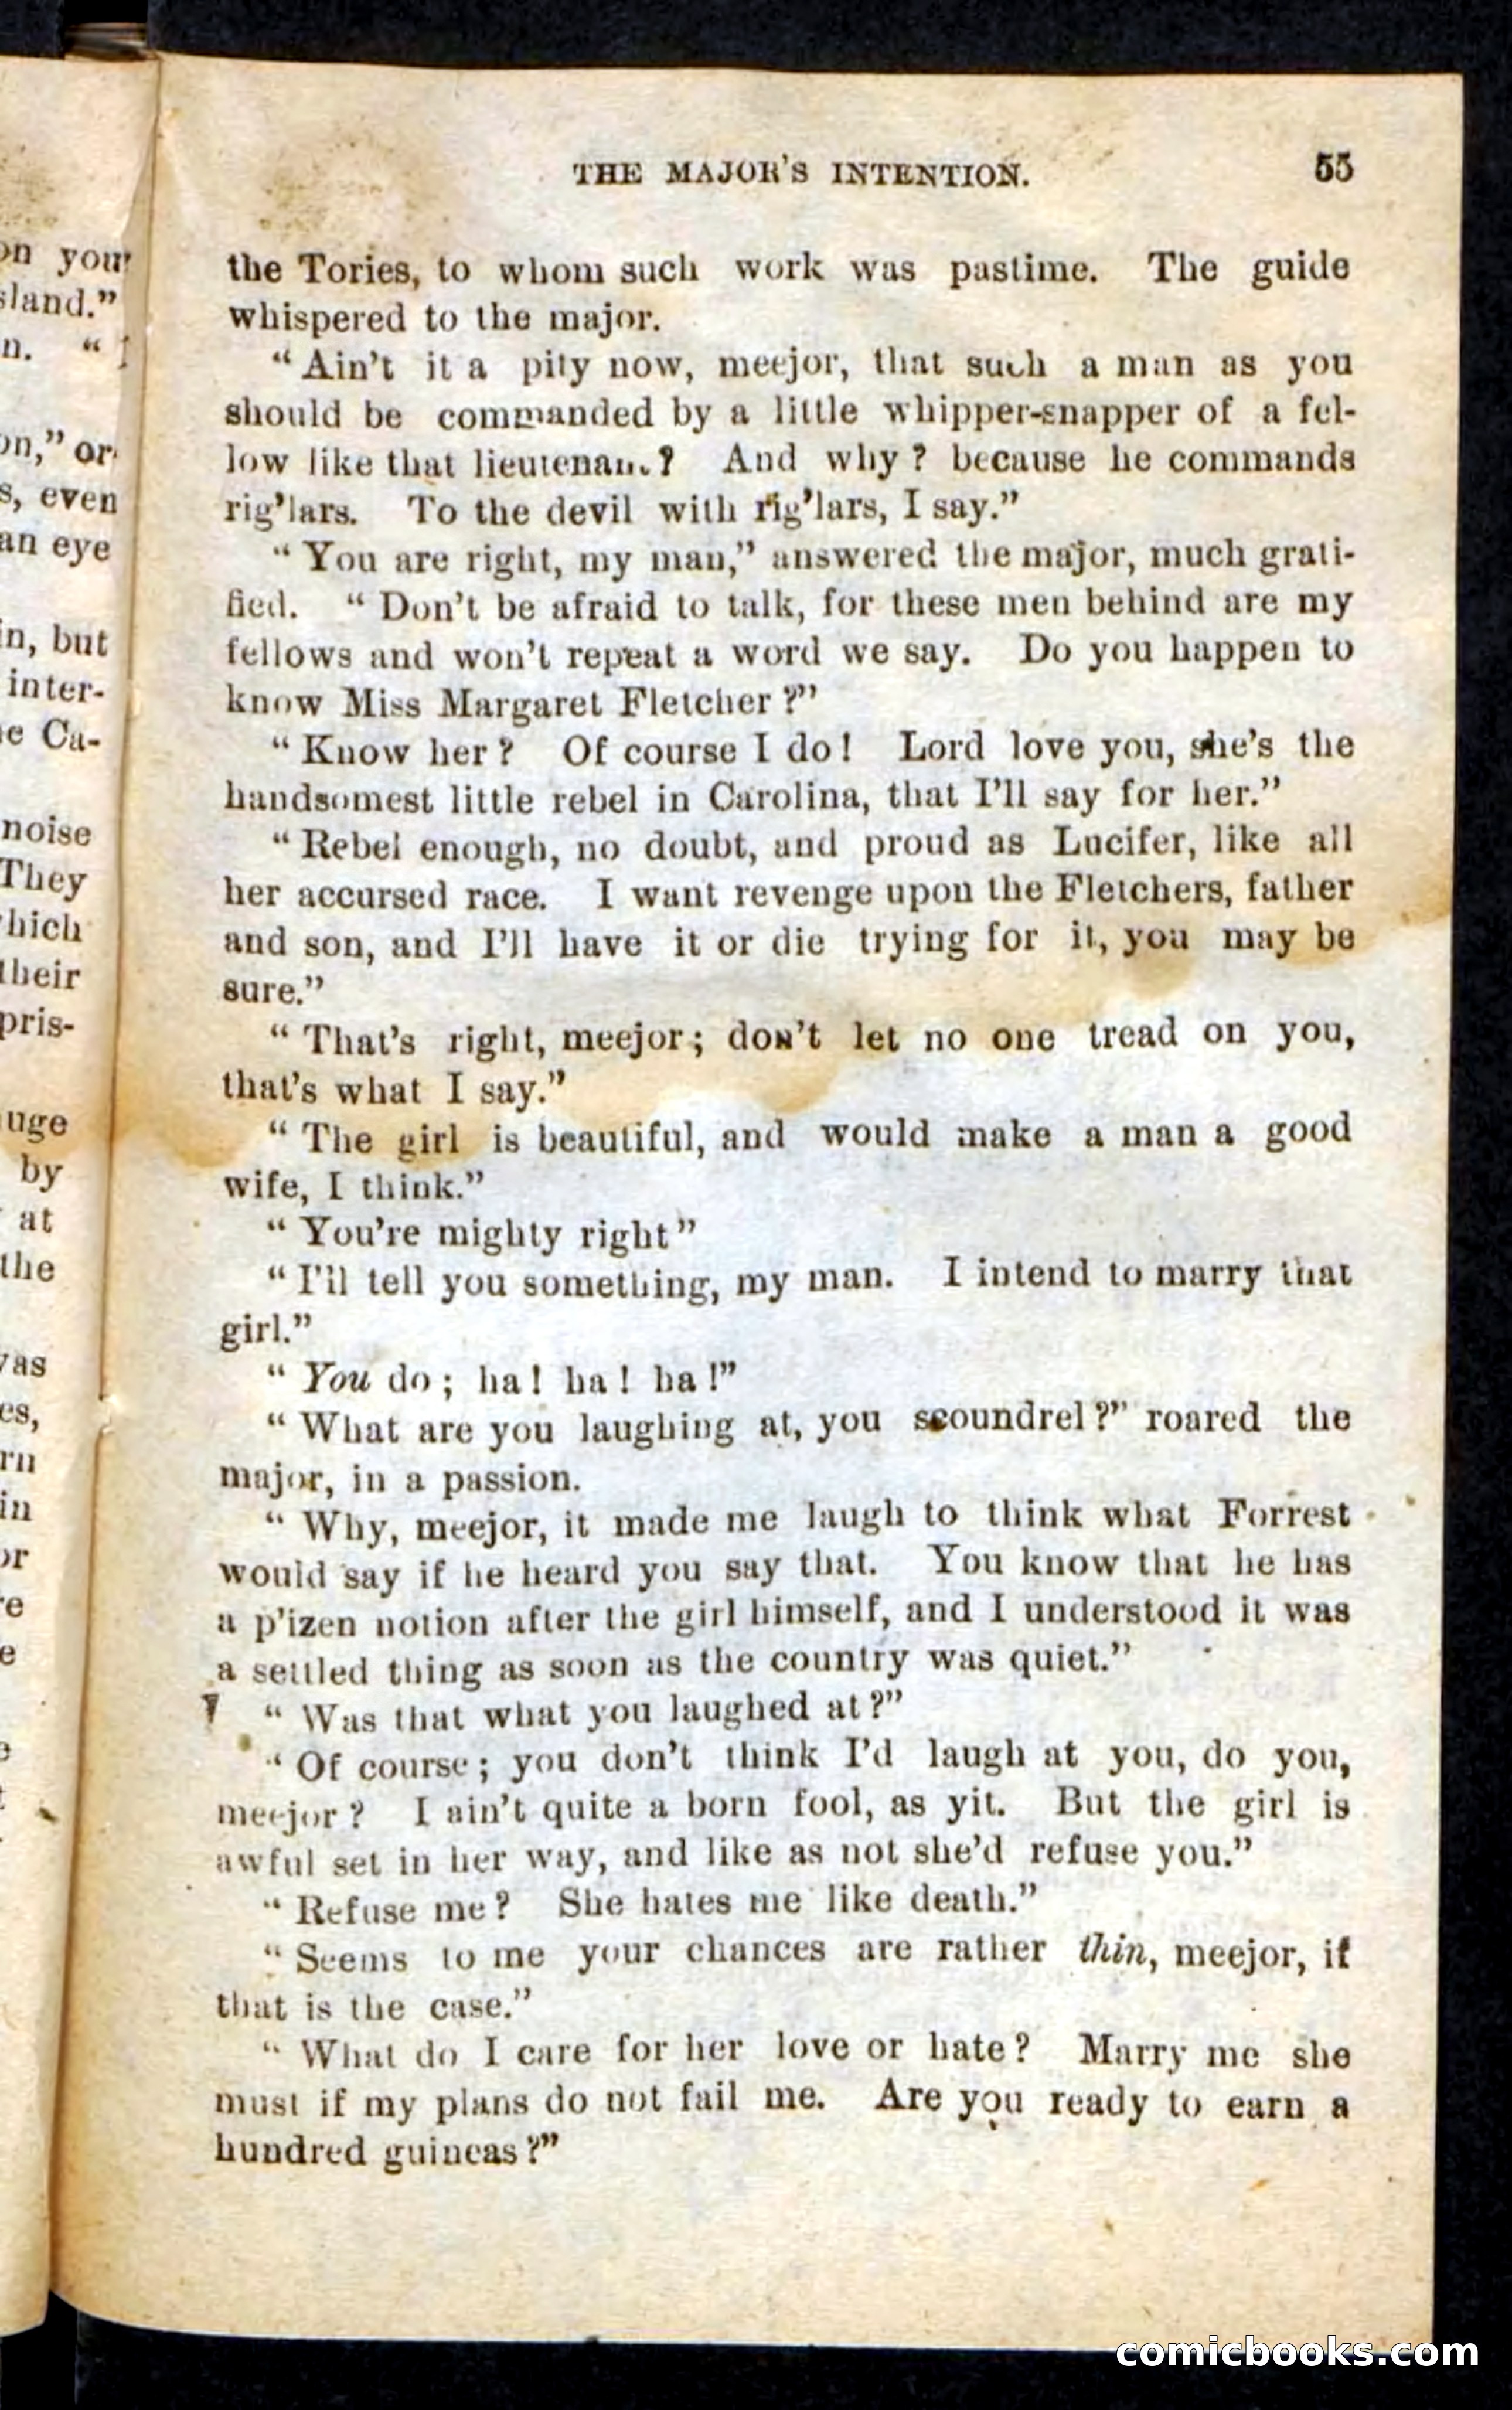 THE MAJOR'S INTENTION. 55
the Tories, to whom such work was pastime. The guide
whispered to the major.
“Ain't it a pity now, meejor, that such a man as you
should be commanded by a little whipper-snapper of a fel-
low like that lieutenant? And why? because he commands
rig'lars. To the devil with rig'lars, I say.”
“You are right, my man,” answered the major, much grati-
fied. “Don't be afraid to talk, for these men behind are my
fellows and won't repeat a word we say. Do you happen to
know Miss Margaret Fletcher?”
“Know her? Of course I do! Lord love you, she's the
handsomest little rebel in Carolina, that I'll say for her.”
“Rebel enough, no doubt, and proud as Lucifer, like all
her accursed race. I want revenge upon the Fletchers, father
and son, and I'll have it or die trying for it, you may be
sure.”
“That's right, meejor; don't let no one tread on you,
that's what I say.”
“The girl is beautiful, and would make a man a good
wife, I think.”
“You're mighty right”
“I'll tell you something, my man. I intend to marry that
girl.”
“You do; ha! ha! ha!”
“What are you laughing at, you scoundrel?” roared the
major, in a passion.
“Why, meejor, it made me laugh to think what Forrest
would say if he heard you say that. You know that he has
a p'izen notion after the girl himself, and I understood it was
a settled thing as soon as the country was quiet.”
“Was that what you laughed at?”
“Of course; you don't think I'd laugh at you, do you,
meejor? I ain't quite a born fool, as yit. But the girl is
awful set in her way, and like as not she'd refuse you.”
“Refuse me? She hates me like death.”
“Seems to me your chances are rather thin, meejor, if
that is the case.”
“What do I care for her love or hate? Marry me she
must if my plans do not fail me. Are you ready to earn a
hundred guineas?”
on your
sland.”
n. “I
on,” or
s, even
an eye
in, but
inter-
e Ca-
noise
They
which
their
pris-
uge
by
at
the
was
es,
rn
in
or
re
e
comicbooks.com